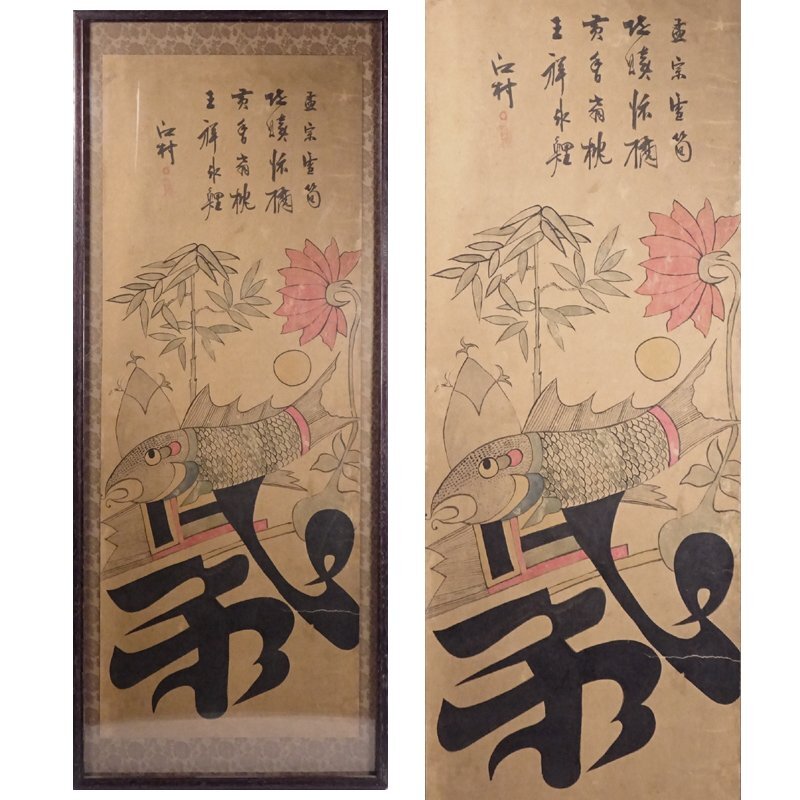 孟宗雪筍
陸績懷橘
黃香扇枕
王祥氷鯉
江村
孝
孟宗雪筍
陸績懷橘
黃香扇枕
王祥氷鯉
江村
孝